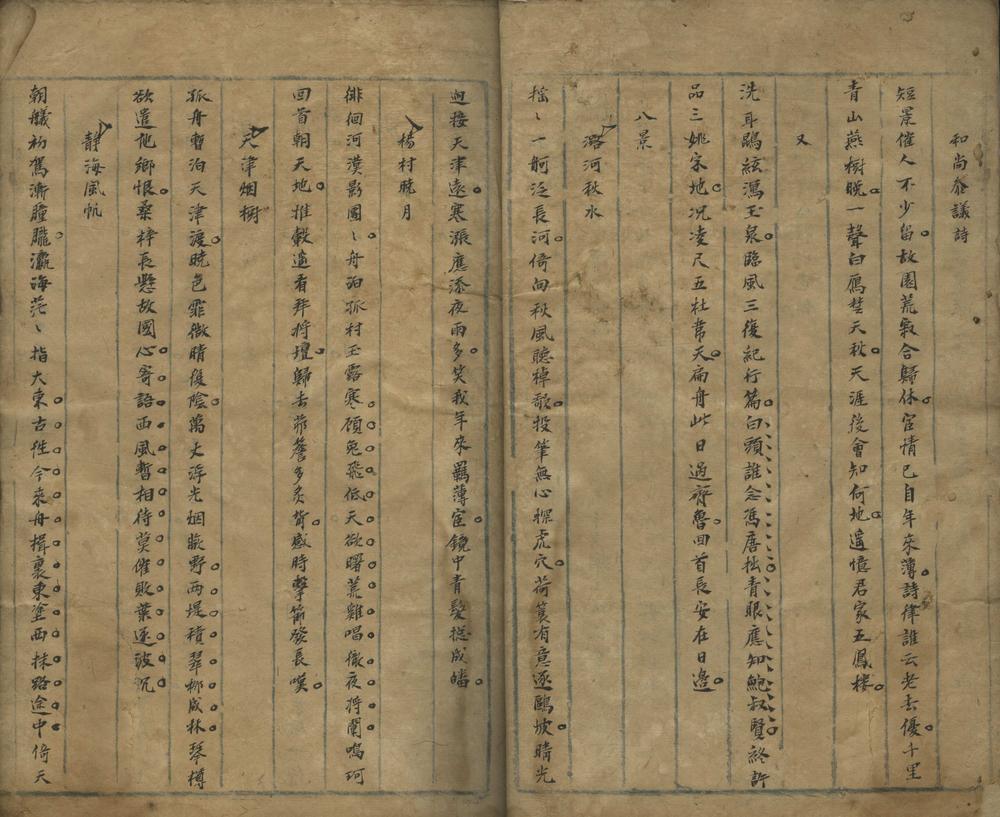 和尚參議詩
短景催人不少留故園荒寂合歸休宦情已自年來薄詩律誰云老去優十里
青山燕樹晚一聲白鴈楚天秋天涯後會知何地遥憶君家五鳳樓
又
洗耳鵾絃瀉玉泉臨風三復紀行篇白頭誰念馮唐拙青眼應知鮑叔賢終許
品三姚宋地况凌尺五杜韋天扁舟此日過齊魯回首長安在日邊
八景
潞河秋水
搖〻一舸泛長河倚向秋風聽棹歌投筆無心探虎穴荷蓑有意逐鷗坡晴光
迥接天津遠寒漲應添夜雨多笑我年來羈薄宦鏡中青髮從成皤
楊村曉月
徘徊河漢影團〻舟泊孤村玉露寒顧兔飛低天欲曙荒雞唱徹夜將闌鳴珂
回首朝天地推轂遥看拜將壇歸去茆簷多炙背感時擊節發長嘆
天津烟樹
孤舟暫泊天津渡曉色霏微晴復陰萬丈浮光烟蔽野兩堤積翠柳成林琴樽
欲遣他鄉恨桑梓長懸故國心寄語西風暫相待莫催敗葉逐波沉
靜海風帆
朝艤初駕漸朣朧瀛海茫〻指大東古徃今來舟楫裏東塗西抹路途中倚天